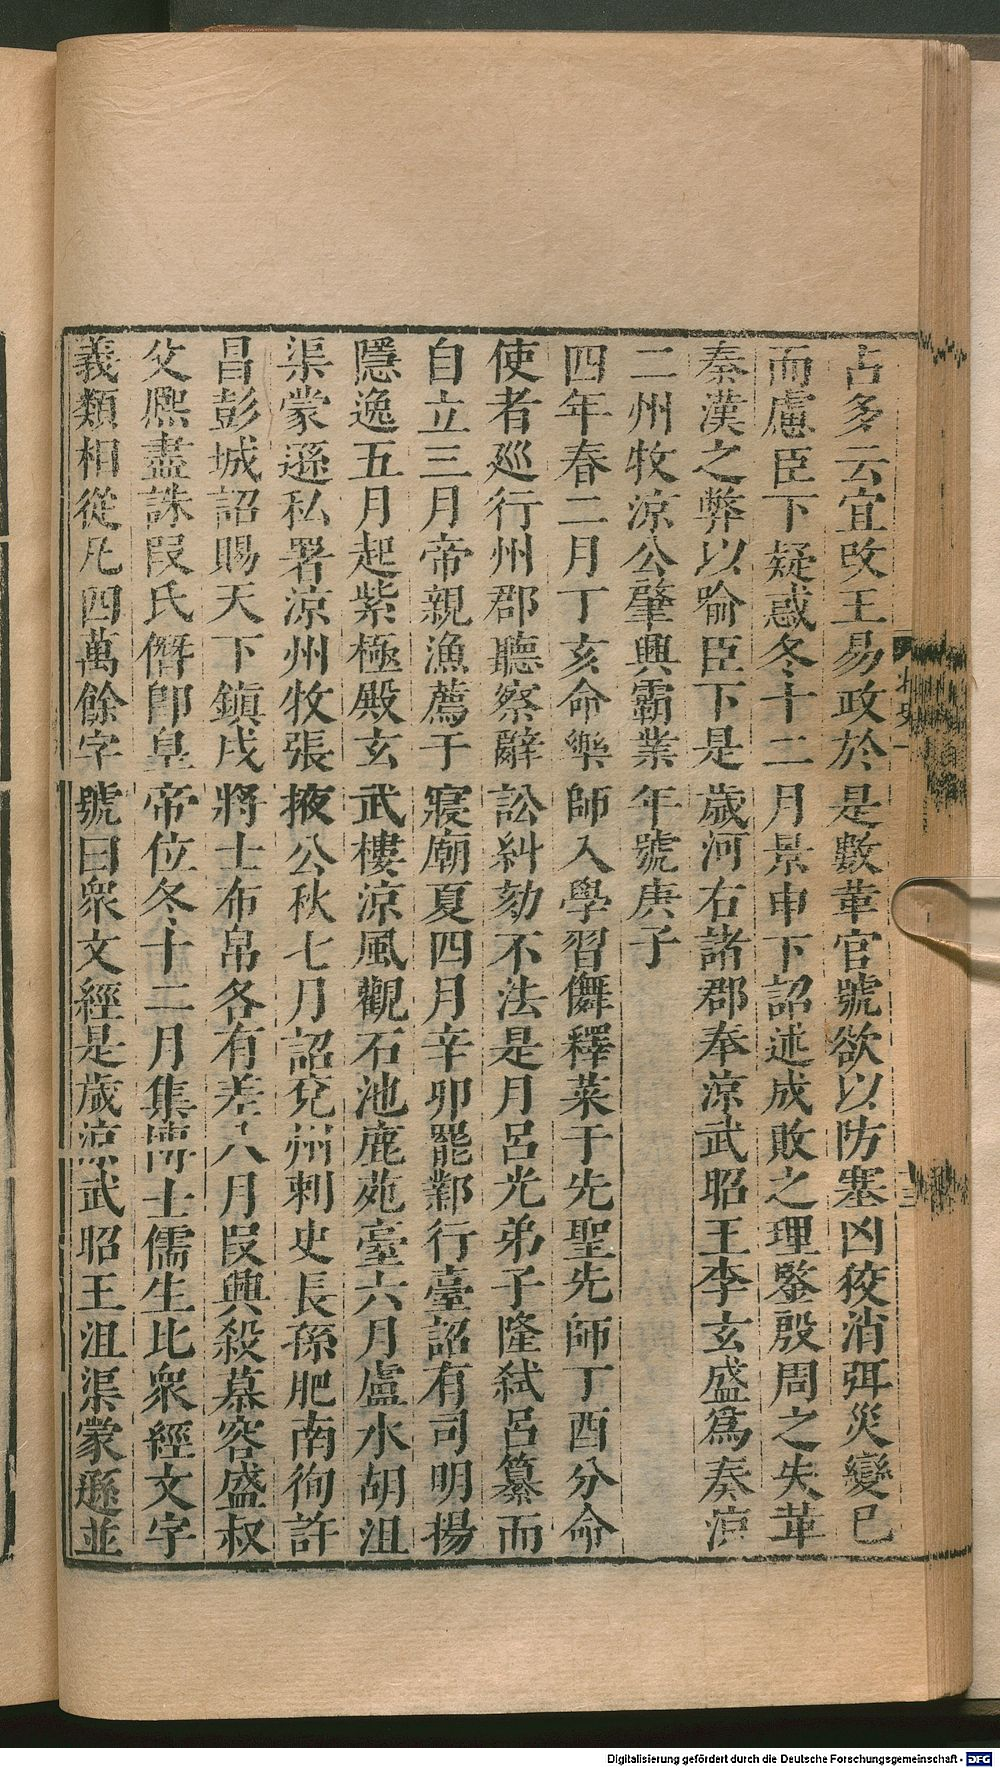 占多云宜改王易政於是數革官號欲以防塞凶狡消弭災變已
而慮臣下疑惑冬十二月景申下詔述成敗之理鑒殷周之失革
秦漢之弊以喻臣下是歲河右諸郡奉涼武昭王李玄盛爲秦涼
二州牧涼公肇興霸業年號庚子
四年春二月丁亥命樂師入學習儛釋菜于先聖先師丁酉分命
使者巡行州郡聽察辭訟糾劾不法是月呂光弟子隆弑呂纂而
自立三月帝親漁薦于寢廟夏四月辛卯罷鄴行臺詔有司明揚
隱逸五月起紫極殿玄武樓涼風觀石池鹿苑臺六月盧水胡沮
渠蒙遜私署涼州牧張掖公秋七月詔兗州刺史長孫肥南徇許
昌彭城詔賜天下鎮戍將士布帛各有差八月段興殺慕容盛叔
父熙盡誅段氏僭即皇帝位冬十二月集博士儒生比衆經文字
義類相從凡四萬餘字號曰衆文經是歲涼武昭王沮渠蒙遜並
北史一
Digitalisierung gefördert durch die Deutsche Forschungsgemeinschaft - DFG